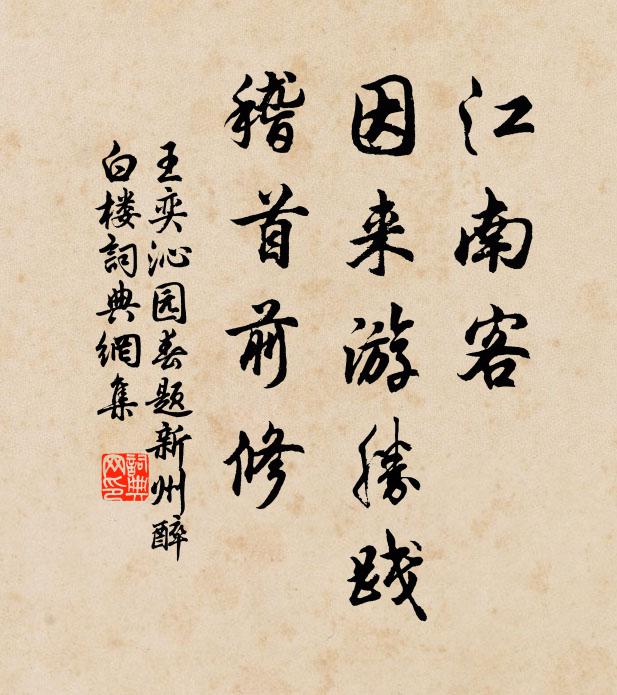 江南客
因来游胜践
稽首前修
王奕沁园春题新州醉
白楼詞典網集
詞典网印